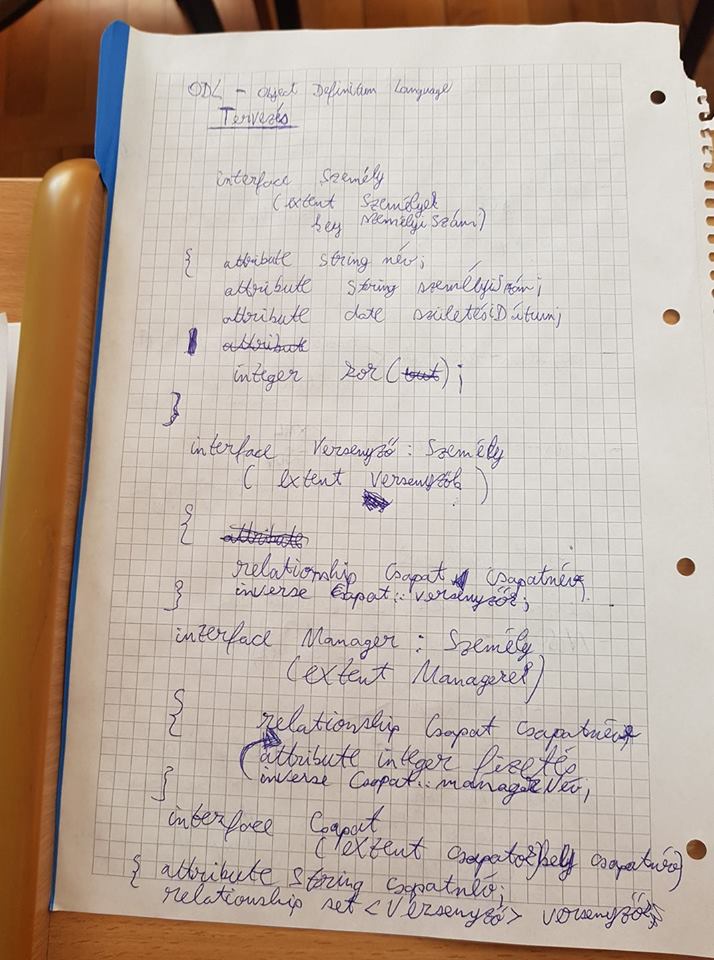 ODL - Object Definition Language
Tervezés
interface Személy
(extent Személyek
key személyiSzám)
{ attribute string név;
attribute string személyiSzám;
attribute date születésiDátum;
attribute
integer kor();
}
interface Versenyző : Személy
( extent Versenyzők )
{ attribute
relationship Csapat csapatnév
inverse Csapat::versenyzők;
}
interface Manager : Személy
(extent Managerek)
{ relationship Csapat csapatnév
attribute integer fizetés
inverse Csapat::managerNév;
}
interface Csapat
(extent csapatok) key csapatnév)
{ attribute string csapatnév;
relationship set <Versenyző> versenyzők